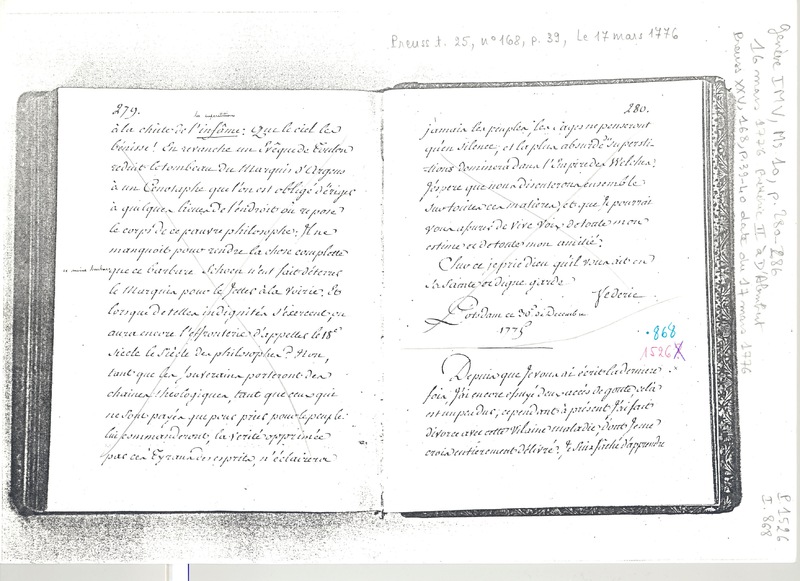 Preuss t. 25, n° 168, p. 39, Le 17 mars 1776
279.
la superstition
à la chute de l'infâme; Que le ciel les
bénisse! En revanche un Evêque de Toulon
reduit le tombeau du Marquis d'Argens
à un Cenotaphe que l'on est obligé d'ériger
à quelques lieues de l'endroit où repose
le corps de ce pauvre philosophe; Il ne
manquoit pour rendre la chose complette
que ce barbare n'eut fait déterrer
le Marquis pour le jetter à la Voirie. Et
lorsque de telles indignités s'exercent, on
aura encore l'effronterie d'appeller le 18e
Siècle le Siècle des philosophes? Non,
tant que les Souverains porteront des
chaines théologiques, tant que ceux qui
ne sont payés que pour prier pour le peuple
lui commanderont, la verité opprimée
par ces Tyrans des esprits, n'éclairera
280.
jamais les peuples, les sages ne penseront
qu'en silence, et la plus absurde des supersti-
tions dominera dans l'Empire des Welches.
J'espere que nous discuterons ensemble
sur toutes ces matieres, et que je pourrai
vous assurer de vive voix de toute mon
estime et de toute mon amitié.
Sur ce je prie dieu qu'il vous ait en
sa Sainte et digne garde
Federic
Potsdam ce 30e de Decembre
1775
868
1526
Depuis que Je vous ai écrit la derniere
fois, J'ai encore essuyé deux accès de goute,
cependant à présent J'ai fait
divorce avec cette Vilaine maladie, dont Je me
crois entièrement délivré; Je suis fâché d'apprendre
Genève IMV, Ms 10, p. 280-286
16 mars 1776 Frédéric II à D'Alembert
Preuss XXV, 168, p. 39-40 daté du 17 mars 1776
P. 1526
I. 868